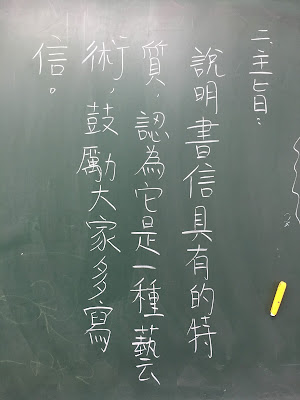 二、主旨：
說明書信具有的特
質，認為它是一種藝
術，鼓勵大家多寫
信。